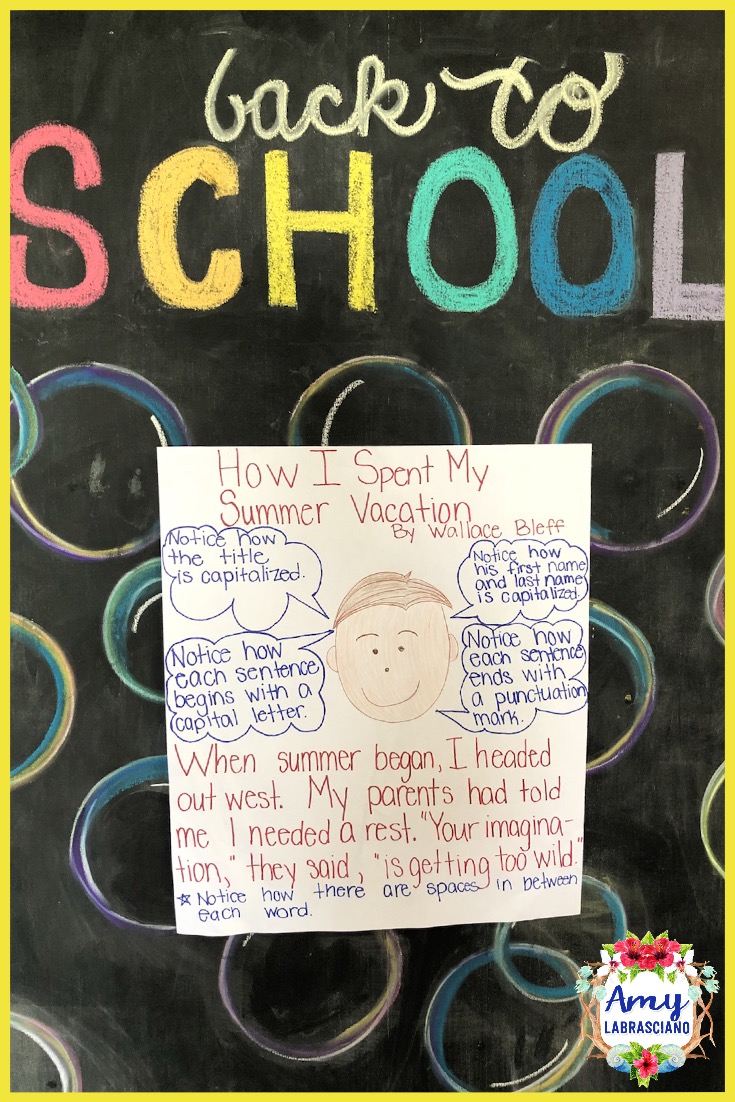 back to
SCHOOL
How I Spent My
Summer Vacation
By Wallace Bleff
Notice how
the title
is capitalized.
Notice how
his first name
and last name
is capitalized.
Notice how
each sentence
begins with a
capital letter.
Notice how
each sentence
ends with
a punctuation
mark.
When summer began, I headed
out west. My parents had told
me I needed a rest. "Your imagina-
tion," they said, "is getting too wild."
☆ Notice how there are spaces in between
each word.
Amy
LABRASCIANO